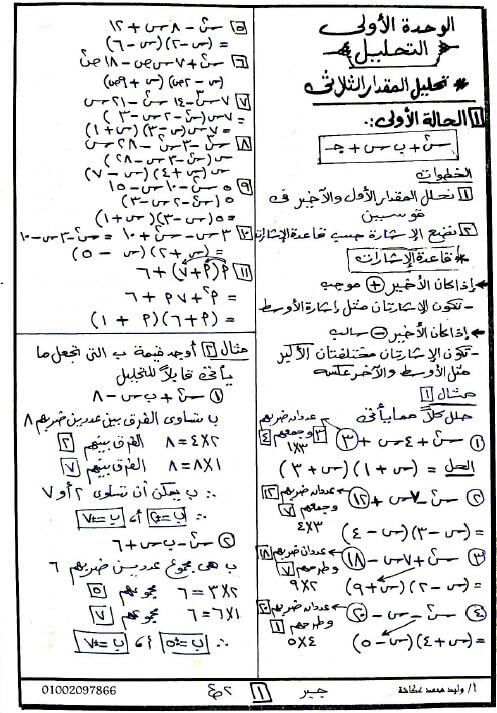 الوحدة الأولى
التحليل
* تحليل المقدار الثلاثى
١ الحالة الأولى:.
س٢ + ب س + جـ
الخطوات
١ نحلل المقدار الأول والأخير فى
قوسين
٢ نضع الإشارة حسب قاعدة الإشارات
* قاعدة الإشارات
← إذا كان الأخير + موجب
- تكون الإشارتان مثل إشارة الأوسط
← إذا كان الأخير - سالب
- تكون الإشارتان مختلفتان الأكبر
مثل الأوسط والآخر عكسه
مثال ١
حلل كلاً مما يأتى
١ س٢ + ٤س + ٣ ← عددان ضربهم ٣ وجمعهم ٤
٣×١
الحل = (س + ١)(س + ٣)
٢ س٢ - ٧س + ١٢ ← عددان ضربهم ١٢
وجمعهم ٧
٤×٣
= (س - ٣)(س - ٤)
٣ س٢ + ٧س - ١٨ ← عددان ضربهم ١٨
وطرحهم ٧
٩×٢
= (س - ٢)(س + ٩)
٤ س٢ - س - ٢٠ ← عددان ضربهم ٢٠
وطرحهم ١
٥×٤
= (س + ٤)(س - ٥)
٥ س٢ - ٨س + ١٢
= (س - ٢)(س - ٦)
٦ س٢ + ٧س ص - ١٨ص٢
(س - ٢ص)(س + ٩ص)
٧ ٧س٣ - ١٤س٢ - ٢١س
= ٧س(س٢ - ٢س - ٣)
= ٧س(س - ٣)(س + ١)
٨ س٣ - ٣س٢ - ٢٨س
س(س٢ - ٣س - ٢٨)
س(س + ٤)(س - ٧)
٩ ٥س٢ - ١٠س - ١٥
٥(س٢ - ٢س - ٣)
= ٥(س - ٣)(س + ١)
١٠ ٣س - س٢ + ١٠ = س٢ - ٣س - ١٠
= (س + ٢)(س - ٥)
١١ م(م + ٧) + ٦
= م٢ + ٧م + ٦
= (م + ٦)(م + ١)
مثال ٢ أوجد قيمة ب التى تجعل ما
يأتى قابلاً للتحليل
١ س٢ + ب س - ٨
ب تساوى الفرق بين عددين ضربهم ٨
٤×٢ = ٨ الفرق بينهم ٢
١×٨ = ٨ الفرق بينهم ٧
∴ ب يمكن أن تساوى ٢ أو ٧
∴ ب = ±٢ أ، ب = ±٧
٢ س٢ - ب س + ٦
ب هى مجموع عددين ضربهم ٦
٣×٢ = ٦ مجموعهم ٥
٦×١ = ٦ مجموعهم ٧
∴ ب = ±٥ أ، ب = ±٧
أ/ وليد محمد عكاشة
جبر ١ ٢ع
01002097866